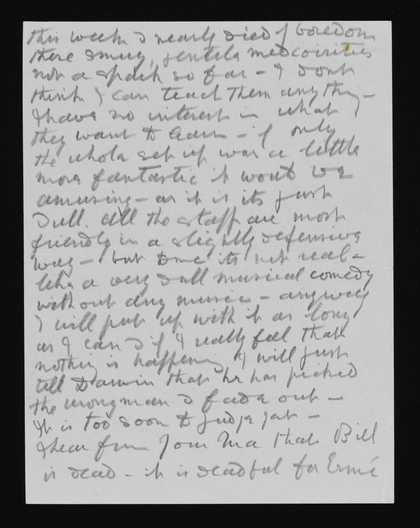 this week I nearly died of boredom
these smug, genteel mediocrities
not a spark so far – I dont
think I can teach them anything –
I have no interest in what
they want to learn – if only
the whole set up was a little
more fantastic it would be
amusing – as it is its just
Dull. All the staff are most
friendly in a slightly defensive
way – but its not real –
like a very dull musical comedy
without any music – anyway
I will put up with it as long
as I can & if I really feel that
nothing is happening I will just
tell Darwin that he has picked
the wrong man & fade out –
It is too soon to judge yet –
I hear from your Ma that Bill
is dead – it is dreadful for Ernie